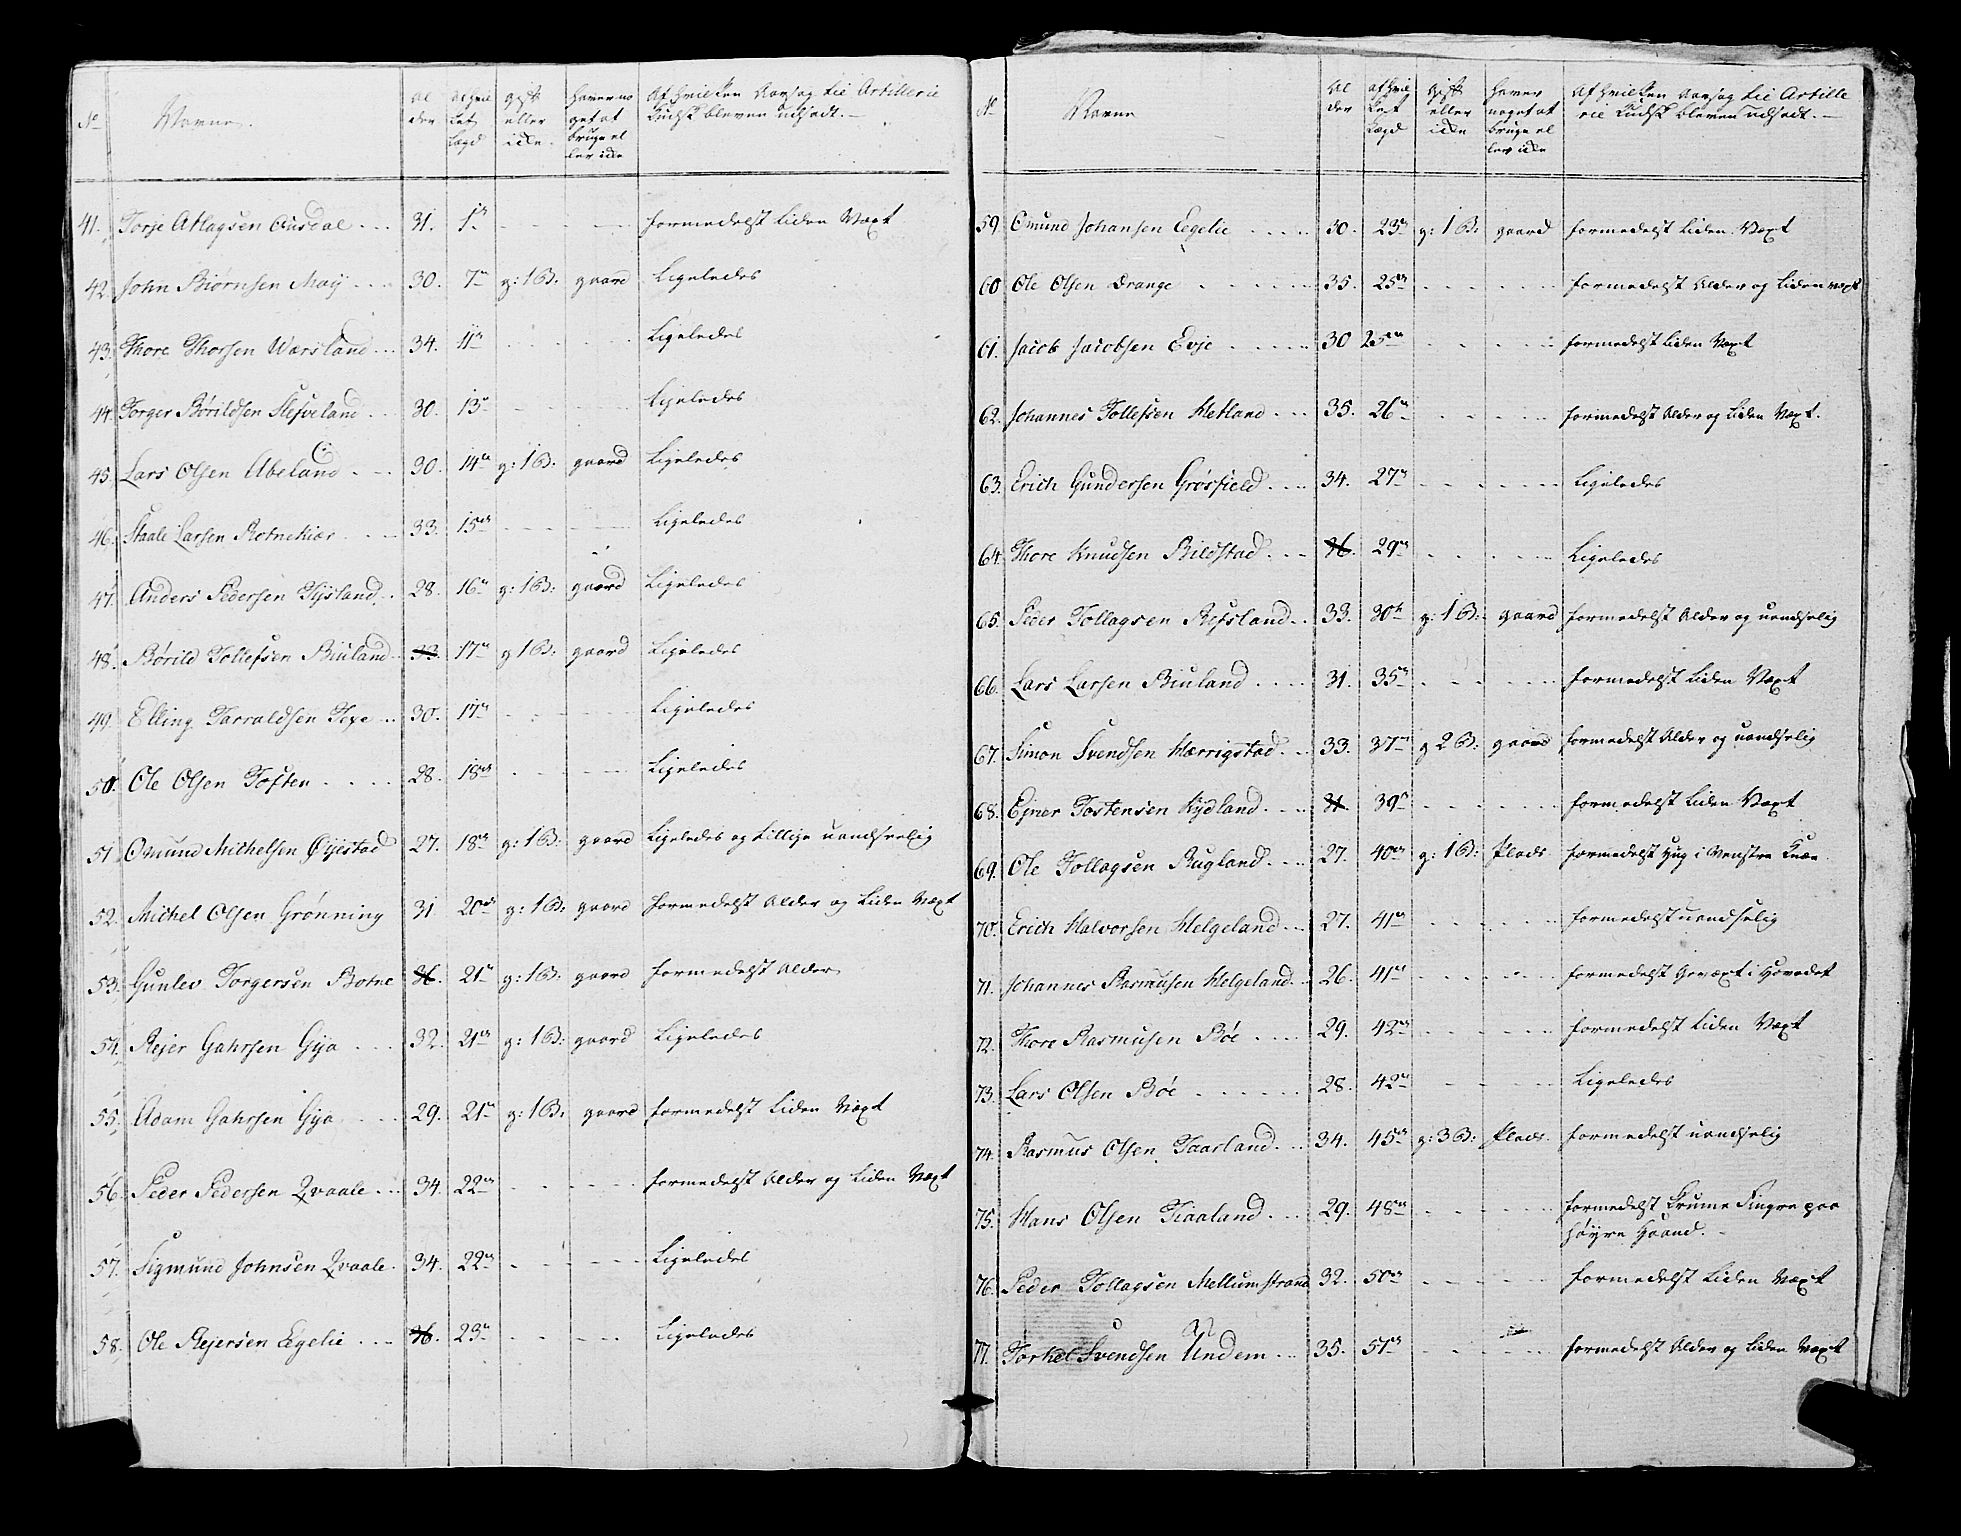 No Navne. Al der af hvilket Lægd gift eller ikke. haver noget at bruge eller ikke Af hvilken Aarsag til Artillerie Kudsk bleven udsadt. —
41. Torje Atlagsen Ousdal 31. 1te formedelst Liden Væxt
42. John Biørnsen Moij 30. 7de g: 1 B: gaard Ligeledes
43. Thore Thorsen Wærsland 34. 11te Ligeledes
44. Torger Børildsen Slefveland 30. 13de Ligeledes
45. Lars Olsen Abeland 30. 14de g: 1 B: gaard Ligeledes
46. Staale Larsen Rotnekiær 33. 15de Ligeledes
47. Anders Pedersen Tijsland 28. 16de g: 1 B: gaard Ligeledes
48. Børild Tollefsen Biuland 33. 17de g 1 B: gaard Ligeledes
49. Elling Tarraldsen Texe 30. 17de Ligeledes
50. Ole Olsen Toften 28. 18de Ligeledes
51. Omund Michelsen Øyestad 27. 18de g: 1 B: gaard Ligeledes og tillige uandseelig
52. Michel Olsen Grønning 31. 20de g: 1 B: gaard formedelst Alder og Liden Væxt
53. Gunlev Torgersen Botne 36. 21de g: 1 B: gaard formedelst Alder
54. Rejer Gahrsen Gya 32. 21de g: 1 B: gaard Ligeledes
55. Adam Gahrsen Gya 29. 21de g: 1 B: gaard formedelst Liden Væxt
56. Peder Pedersen Qvaale 34. 22de formedelst Alder og Liden Væxt
57. Sigmund Johnsen Qvaale 34. 22de Ligeledes
58. Ole Rejersen Eegelie 36. 23de Ligeledes
No Navne Al der af hvilket Lægd gift eller ikke haver noget at bruge eller ikke Af hvilken Aarsag til Artillerie Kudsk bleven udsadt. —
59 Omund Johansen Eegelie 30. 23de g: 1 B: gaard formedelst Liden Væxt
60 Ole Olsen Drange 35. 25de formedelst Alder og Liden væxt
61. Jacob Jacobsen Evje 30 25de formedelst Liden Væxt
62. Johannes Tollefsen Hetland 35. 26de formedelst Alder og Liden Væxt.
63. Erich Gundersen Grøsfield 34. 27de Ligeledes
64. Thore Knudsen Bildstad 36. 29de Ligeledes
65. Peder Tollagsen Refsland 33. 30te g: 1 B: gaard formedelst Alder og uandselig
66. Lars Larsen Biuland 31. 35de formedelst Liden Væxt
67. Simon Svendsen Hærrigstad 33. 37de g 2 B: gaard formedelst Alder og uandselig
68. Ejner Tostensen Kydland 31. 39de formedelst Liden Væxt
69. Ole Tollagsen Rugland 27. 40de g: 1 B: Plads formedelst Hug i Venstre Knæe
70. Erich Halvorsen Helgeland 27. 41de formedelst uandselig
71. Johannes Rasmusen Helgeland 26. 41de formedelst Gevæxt i Hovedet
72. Thore Rasmusen Bøe 29. 42de formedelst Liden Væxt
73. Lars Olsen Bøe 28. 42de Ligeledes
74. Rasmus Olsen Taarland 34. 45de g: 3 B: Plads. formedelst uandselig
75. Hans Olsen Tiaaland 29. 48de formedelst Krume Fingre paa
høyre Haand. —
76. Peder Tollagsen Mellumstrand 32. 50de formedelst Liden Væxt
77. Torkel Svendsen Undem 35. 51de formedelst Alder og Liden Væxt